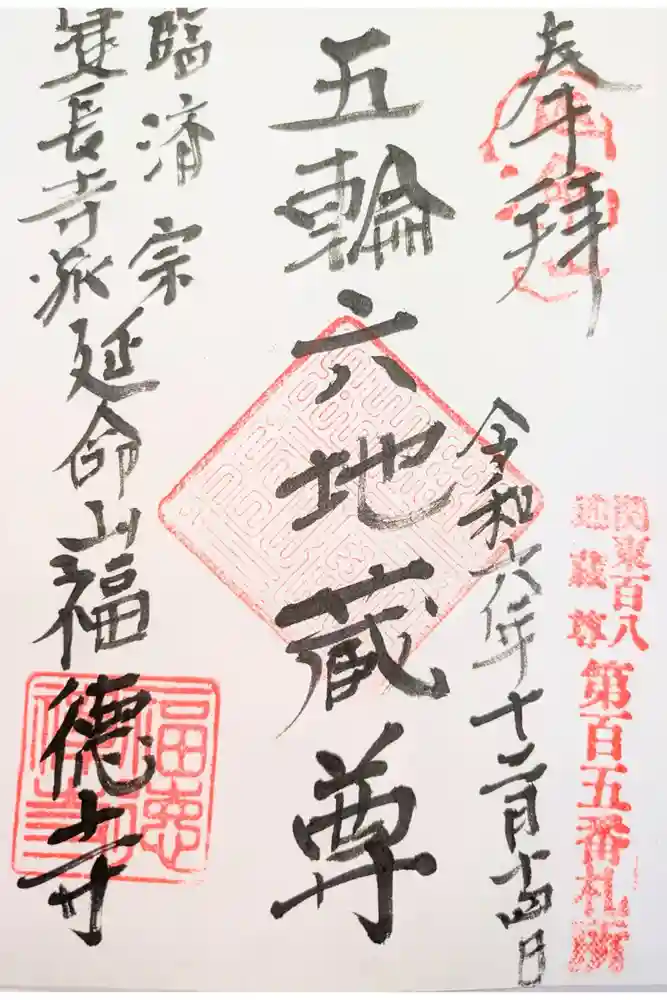 奉拝
関東百八
地蔵尊
第百五番札所
令和六年十二月十四日
五輪六地蔵尊
臨済宗
建長寺派延命山福德寺